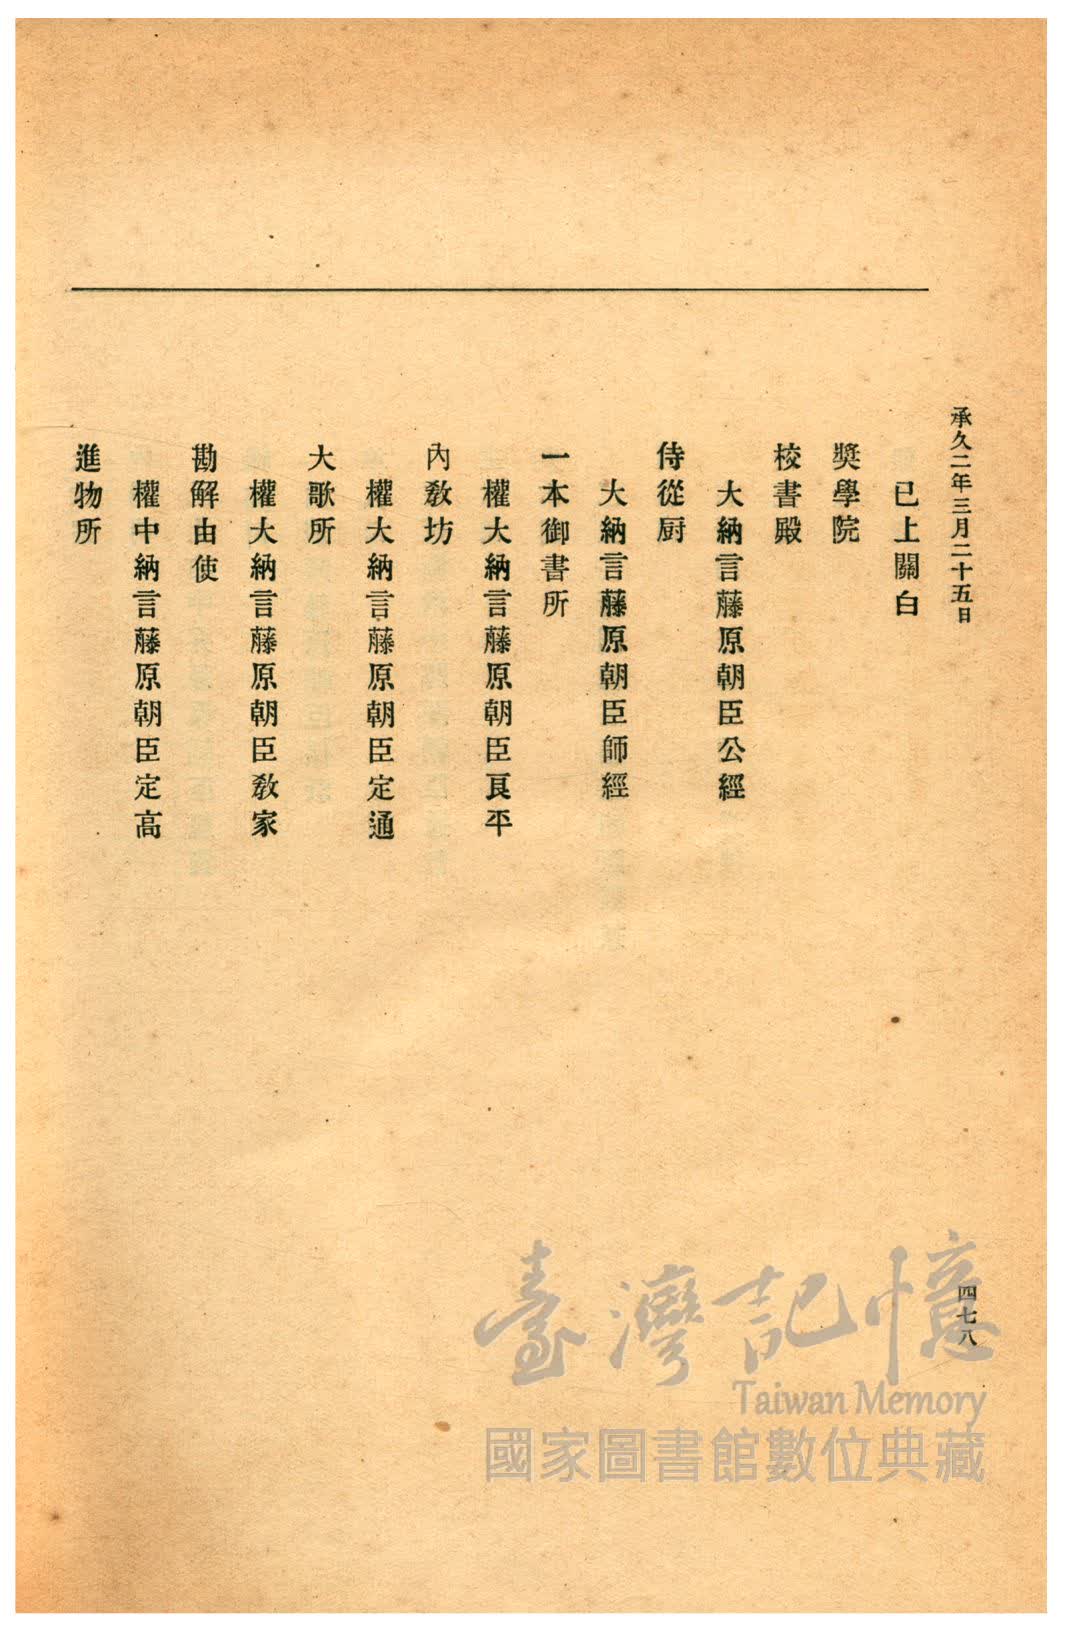 承久二年三月二十五日
已上關白
奬學院
校書殿
大納言藤原朝臣公經
侍從厨
大納言藤原朝臣師經
一本御書所
權大納言藤原朝臣良平
內敎坊
權大納言藤原朝臣定通
大歌所
權大納言藤原朝臣敎家
勘解由使
權中納言藤原朝臣定高
進物所
四七八
臺灣記憶
Taiwan Memory
國家圖書館數位典藏